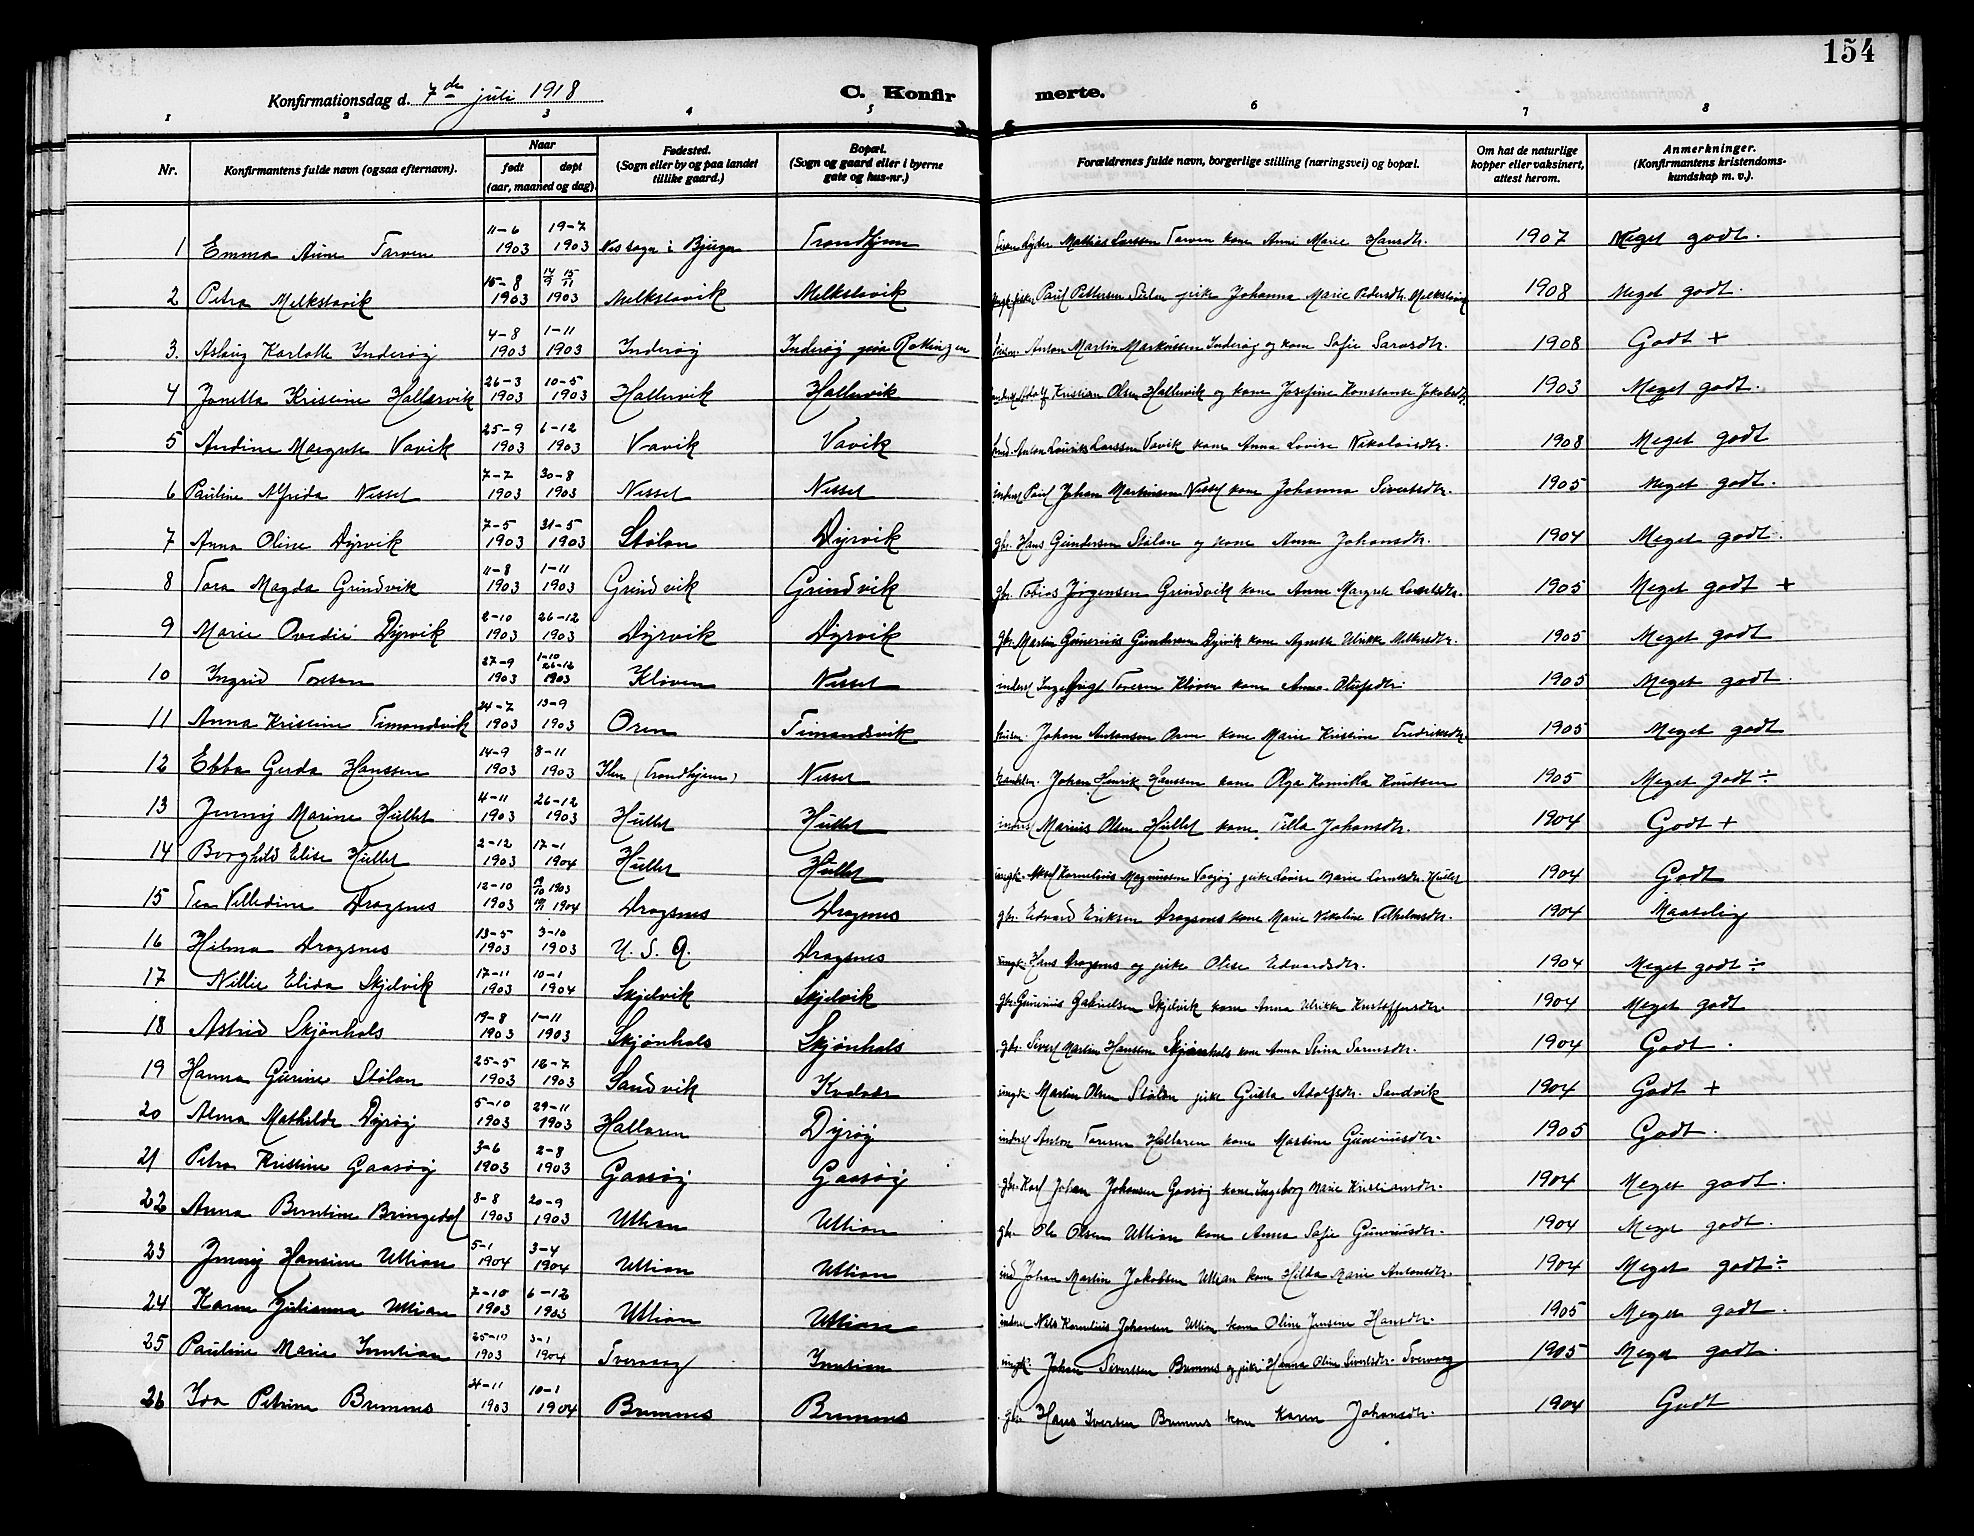 154
Konfirmationsdag d. 7de juli 1918 C. Konfirmerte.
1 2 3 4 5 6 7 8
Nr. Konfirmantens fulde navn (ogsaa efternavn). Naar født døpt (aar, maaned og dag). Fødested. (Sogn eller by og paa landet tillike gaard.) Bopæl. (Sogn og gaard eller i byerne gate og hus-nr.) Forældrenes fulde navn, borgerlige stilling (næringsvei) og bopæl. Om hat de naturlige kopper eller vaksinert, attest herom. Anmerkninger. (Konfirmantens kristendomskundskap m. v.).
1 Emma Aune Tarven 11-6 1903 19-7 1903 Nes sogn i Bjugn Trondhjem Mathias Larssen Tarven kone Anne Marie Hansdtr. 1907 Meget godt.
2 Petra Melkstavik 15-8 1903 15/11 1903 Melkstavik Melkstavik Paul Pettersen pike Johanna Marie Pedersdtr. Melkstavik 1908 Meget godt.
3. Aslaug Karlotte Inderøy 4-8 1903 1-11 1903 Inderøy Inderøy Anton Martin Markussen Inderøy og kone Sofie 1908 Godt +
4 Janetta Kristine Hallarvik 26-3 1903 10-5 1903 Hallervik Hallervik Adolf Kristian Olsen Hallervik og kone Josefine Konstanse Jakobsdtr. 1903 Meget godt.
5 Andine Margrete Vavik 25-9 1903 6-12 1903 Vavik Vavik Anton Laurits Larssen Vavik kone Anna Lovise Nikolaisdtr. 1908 Meget godt
6 Pauline Alfrida Nesset 7-7 1903 30-8 1903 Nesset Nesset inderst Paul Johan Martinsen Nesset kone Johanna Sivertsdtr. 1905 Meget godt.
7 Anna Oline Dyrvik 7-5 1903 31-5 1903 Stølan Dyrvik gbr. Hans Gundersen Stølan og kone Anna Johansdtr. 1904 Meget godt.
8 Tora Magda Grindvik 11-8 1903 1-11 1903 Grindvik Grindvik gbr. Tobias Jørgensen Grindvik kone Anne Margrete 1905 Meget godt +
9 Marie Ovedie Dyrvik 2-10 1903 26-12 1903 Dyrvik Dyrvik gbr. Martin Gunerius Gundersen Dyrvik kone Agnete Ulrikke 1905 Meget godt
10 Ingrid Toresen 27-9 1903 1-10 26-12 1903 Kløven Nesset inderst Ingebrigt Toresen Kløven kone Anna Olufsdtr. 1905 Meget godt.
11 Anna Kristine Timandsvik 24-7 1903 13-9 1903 Oren Timandsvik Johan Antonsen Oren kone Marie Kristine Fredriksdtr. 1905 Meget godt
12 Ebba Gerda Hanssen 14-9 1903 8-11 1903 Ilen (Trondhjem) Nesset Johan Henrik Hanssen kone Olga Kamilla Knutssen 1905 Meget godt ÷
13 Jenny Marine Hullet 4-11 1903 26-12 1903 Hullet Hullet inderst Marius Olsen Hullet kone Tilla Johansdtr. 1904 Godt +
14 Borghild Elise Hullet 2-12 1903 17-1 1904 Hullet Hullet ungk. Aksel Kornelius Magnussen pike Lovise Marie Hullet 1904 Godt
15 Tea Villedine Dragsnes 12-10 1903 1903 1904 Dragsnes Dragsnes gbr. Edvard Eriksen Dragsnes kone Marie Nikoline Vilhelmsdtr. 1904 Maadelig
16 Hilma Dragsnes 13-5 1903 3-10 1903 U. S. A. Dragsnes ungk. Hans Dragsnes og pike Olise Edvardsdtr. 1904 Meget godt ÷
17 Nillie Elida Skjelvik 17-11 1903 10-1 1904 Skjelvik Skjelvik gbr. Gunerius Gabrielsen Skjelvik kone Anna Ulrikke Kristoffersdtr. 1904 Meget godt
18 Astrid Skjønhals 19-8 1903 1-11 1903 Skjønhals Skjønhals gbr. Sivert Martin Hansen Skjønhals kone Anna Stina 1904 Godt.
19 Hanna Gurine Stølan 25-5 1903 12-7 1903 Sandvik ungk. Martin Olsen Stølan pike Gusta Adolfsdtr. Sandvik 1904 Godt +
20 Alma Mathilde Dyrøy 5-10 1903 29-11 1903 Hallaren Dyrøy inderst Anton Toresen Hallaren kone Martine Guneriusdtr. 1905 Godt.
21 Petra Kristine Gaasøy 3-6 1903 2-8 1903 Gaasøy Gaasøy gbr. Karl Johan Johansen Gaasøy kone Ingeborg Marie Kristiansdtr. 1904 Meget godt.
22 Anna Berntine Bringedal 8-8 1903 20-9 1903 Uttian Uttian gbr. Ole Olsen Uttian kone Anna Sofie Guneriusdtr. 1904 Meget godt.
23 Jenny Hansine Uttian 5-1 1904 3-4 1904 Uttian Uttian ind Johan Martin Jakobsen Uttian kone Hilda Marie Antonsdtr. 1904 Meget godt ÷
24 Karen Julianna Uttian 7-10 1903 6-12 1903 Uttian Uttian inderst Nils Kornelius Johansen Uttian kone Oline Jensine Hansdtr. 1905 Meget godt.
25 Pauline Marie Inntian 25-10 1903 3-1 1904 Tvervaag Inntian ungk. Johan Sivertsen Bremnes og pike Hanna Oline Sivertsdtr. Tvervaag 1905 Meget godt.
26 Ida Petrine Bremnes 24-11 1903 10-1 1904 Bremnes Bremnes gbr. Hans Iversen Bremnes kone Karen Johansdtr. 1904 Godt